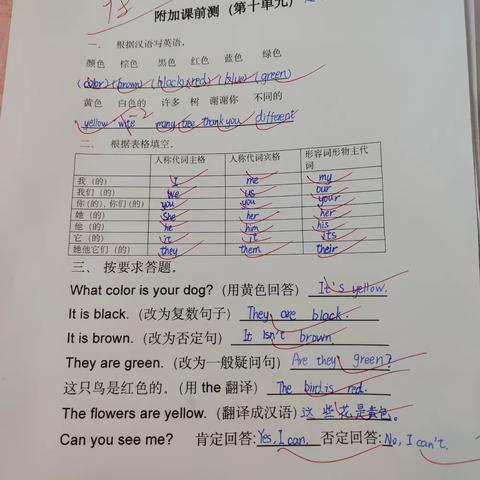 98
附加课前测（第十单元）
一． 根据汉语写英语．
颜色 棕色 黑色 红色 蓝色 绿色
(color) (brown) (black) (red) (blue) (green)
黄色 白色的 许多 树 谢谢你 不同的
yellow wite -2 many tree thank you different
二． 根据表格填空．
人称代词主格 人称代词宾格 形容词形物主代词
我（的） I me my
我们（的） we us our
你（的），你们（的） you you your
她（的） She her her
他（的） he him his
它（的） it it its
她他它们（的） they them their
三、 按要求答题．
What color is your dog? (用黄色回答) It's yellow.
It is black. (改为复数句子) They are black.
It is brown. (改为否定句) It isn't brown
They are green. (改为一般疑问句) Are they green?
这只鸟是红色的．（用 the 翻译） The bird is red.
The flowers are yellow. (翻译成汉语) 这些花是黄色。
Can you see me? 肯定回答: Yes, I can. 否定回答: No, I can't.